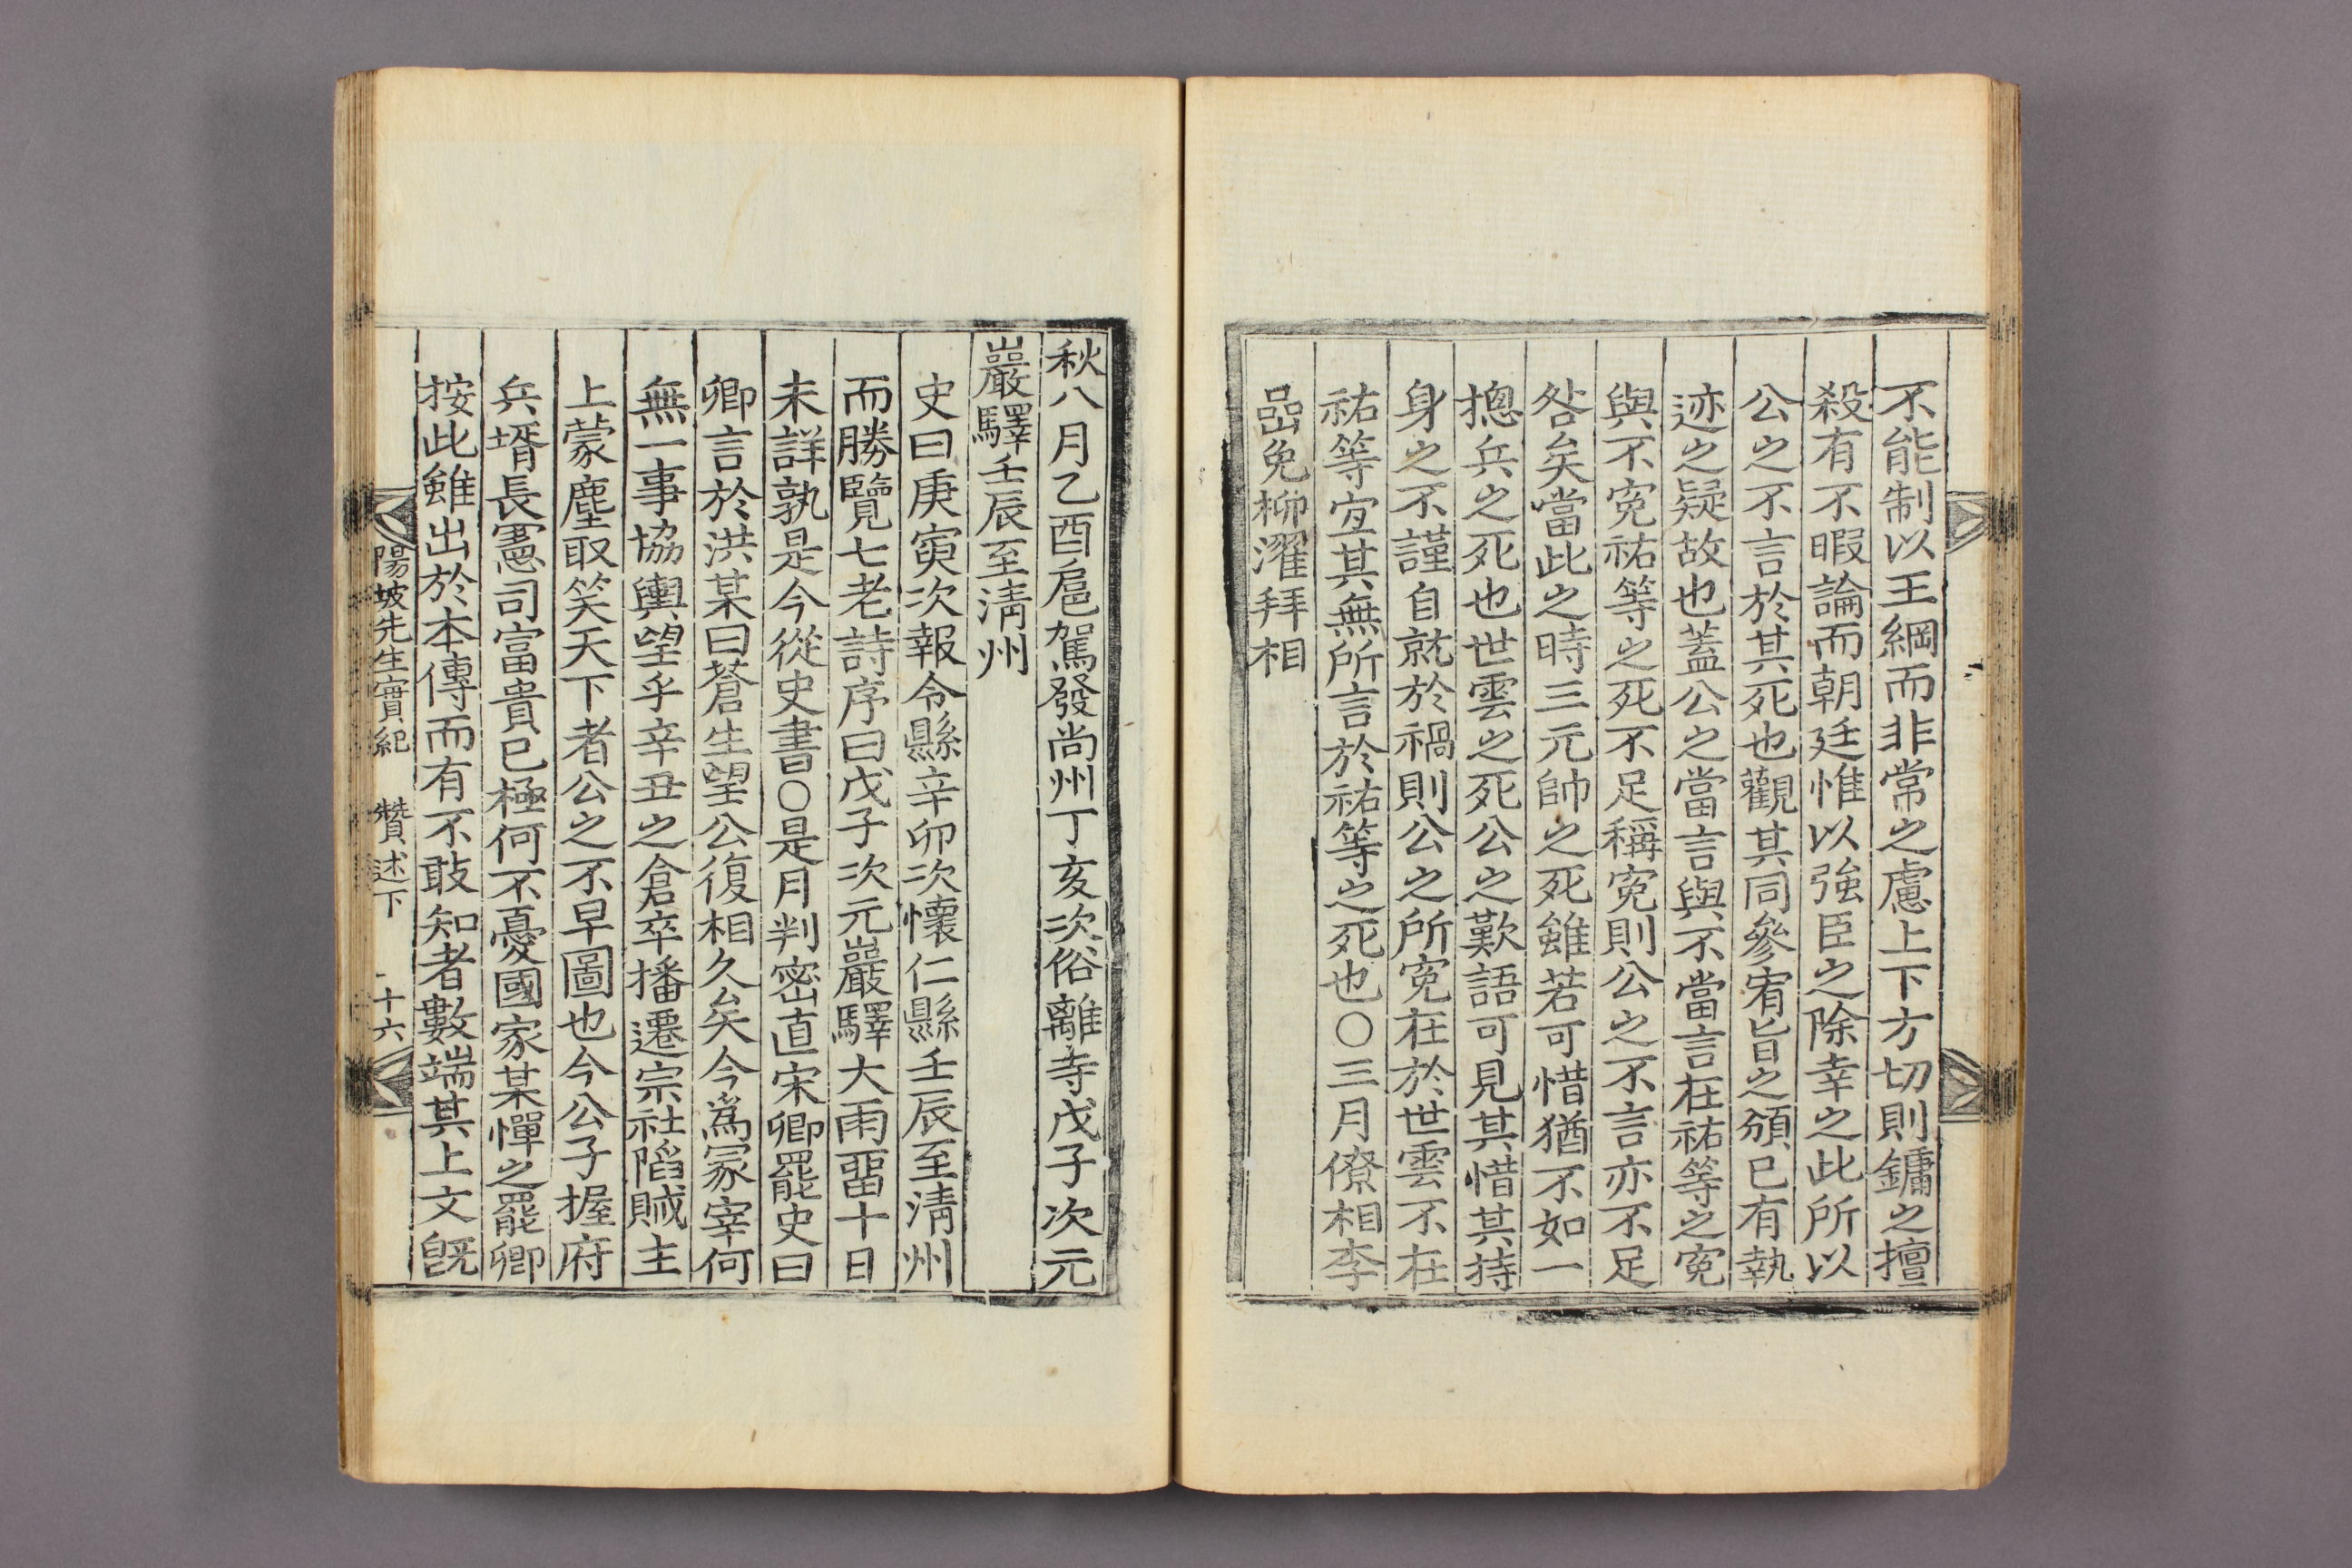 不能制以王綱而非常之慮上下方切則鏞之擅
殺有不暇論而朝廷惟以強臣之除幸之此所以
公之不言於其死也觀其同參宥旨之頒已有執
迹之疑故也蓋公之當言與不當言在祐等之寃
與不寃祐等之死不足稱寃則公之不言亦不足
咎矣當此之時三元帥之死雖若可惜猶不如一
摠兵之死也世雲之死公之歎語可見其惜其持
身之不謹自就於禍則公之所寃在於世雲不在
祐等宜其無所言於祐等之死也○三月僚相李
嵒免柳濯拜相
秋八月乙酉扈駕發尚州丁亥次俗離寺戊子次元
巖驛壬辰至淸州
史曰庚寅次報令縣辛卯次懷仁縣壬辰至淸州
而勝覽七老詩序曰戊子次元巖驛大雨留十日
未詳孰是今從史書○是月判密直宋卿罷史曰
卿言於洪某曰蒼生望公復相久矣今爲冢宰何
無一事協輿望乎辛丑之倉卒播遷宗社陷賊主
上蒙塵取笑天下者公之不早圖也今公子握府
兵壻長憲司富貴已極何不憂國家某憚之罷卿
按此雖出於本傳而有不敢知者數端其上文旣
陽坡先生實紀 贊述下 十六